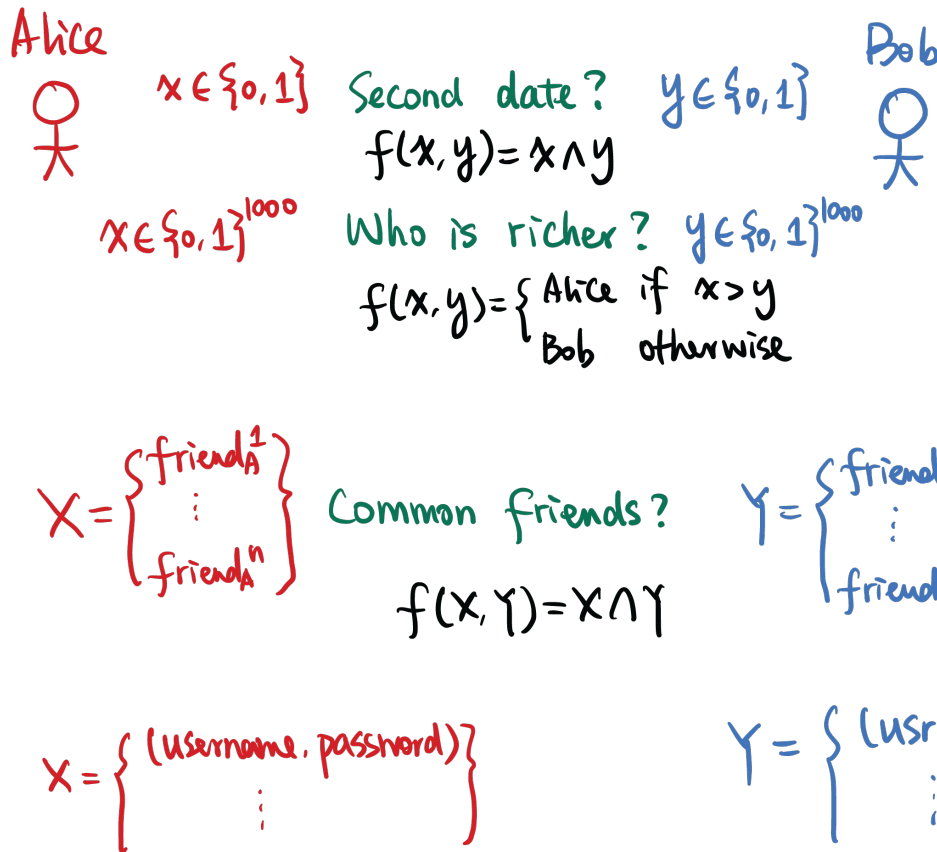 Alice Bob
x ∈ {0,1} Second date? y ∈ {0,1}
f(x,y) = x ∧ y
x ∈ {0,1}^1000 Who is richer? y ∈ {0,1}^1000
f(x,y) = { Alice if x > y
Bob otherwise
X = { friend_A^1 Common friends? Y = { friend
⋮ ⋮
friend_A^n } friend
f(X,Y) = X ∩ Y
X = { (username, password) } Y = { (usr
⋮ ⋮